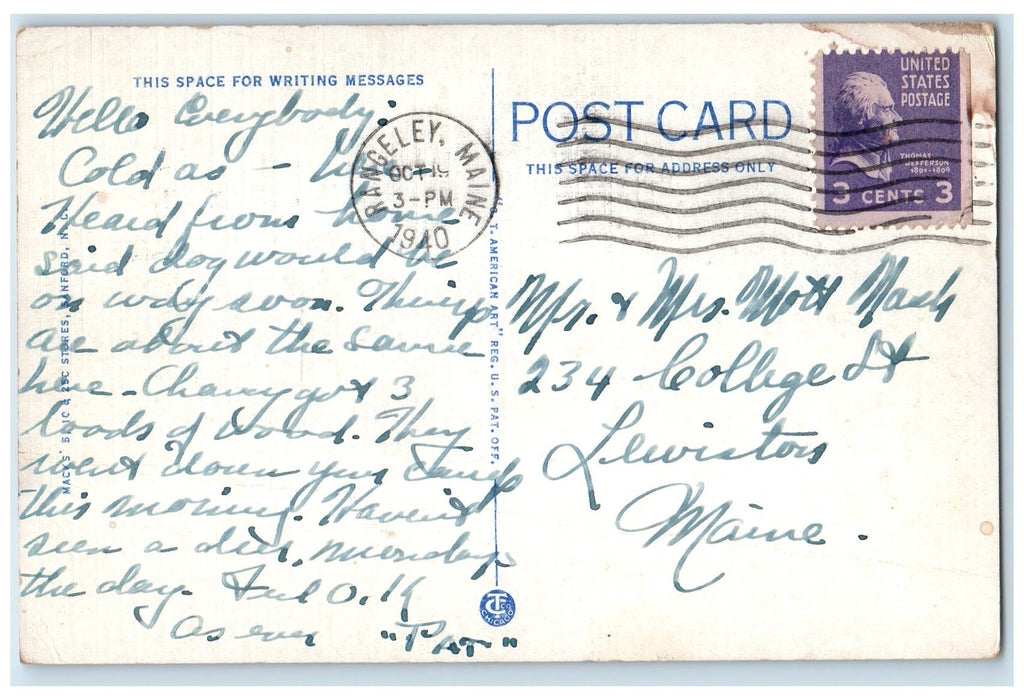 THIS SPACE FOR WRITING MESSAGES
Hello Everybody:
Cold as –
Heard from home
said dog would be
on way soon. Things
are about the same
here – Chancy got 3
loads of wood. They
went down your camp
this morning. Haven't
seen a deer, Mondays
the day. Feel O.K
As ever "PAT"
RANGELEY, MAINE
OCT
3-PM
1940
MACKS' 5, 10 & 25C STORES, SANFORD, N. C.
"C. T. AMERICAN ART" REG. U. S. PAT. OFF.
CT CO
CHICAGO
POST CARD
THIS SPACE FOR ADDRESS ONLY
UNITED
STATES
POSTAGE
THOMAS
JEFFERSON
1801-1809
3 CENTS 3
Mr. & Mrs. Mott Nash
234 College St
Lewiston
Maine.